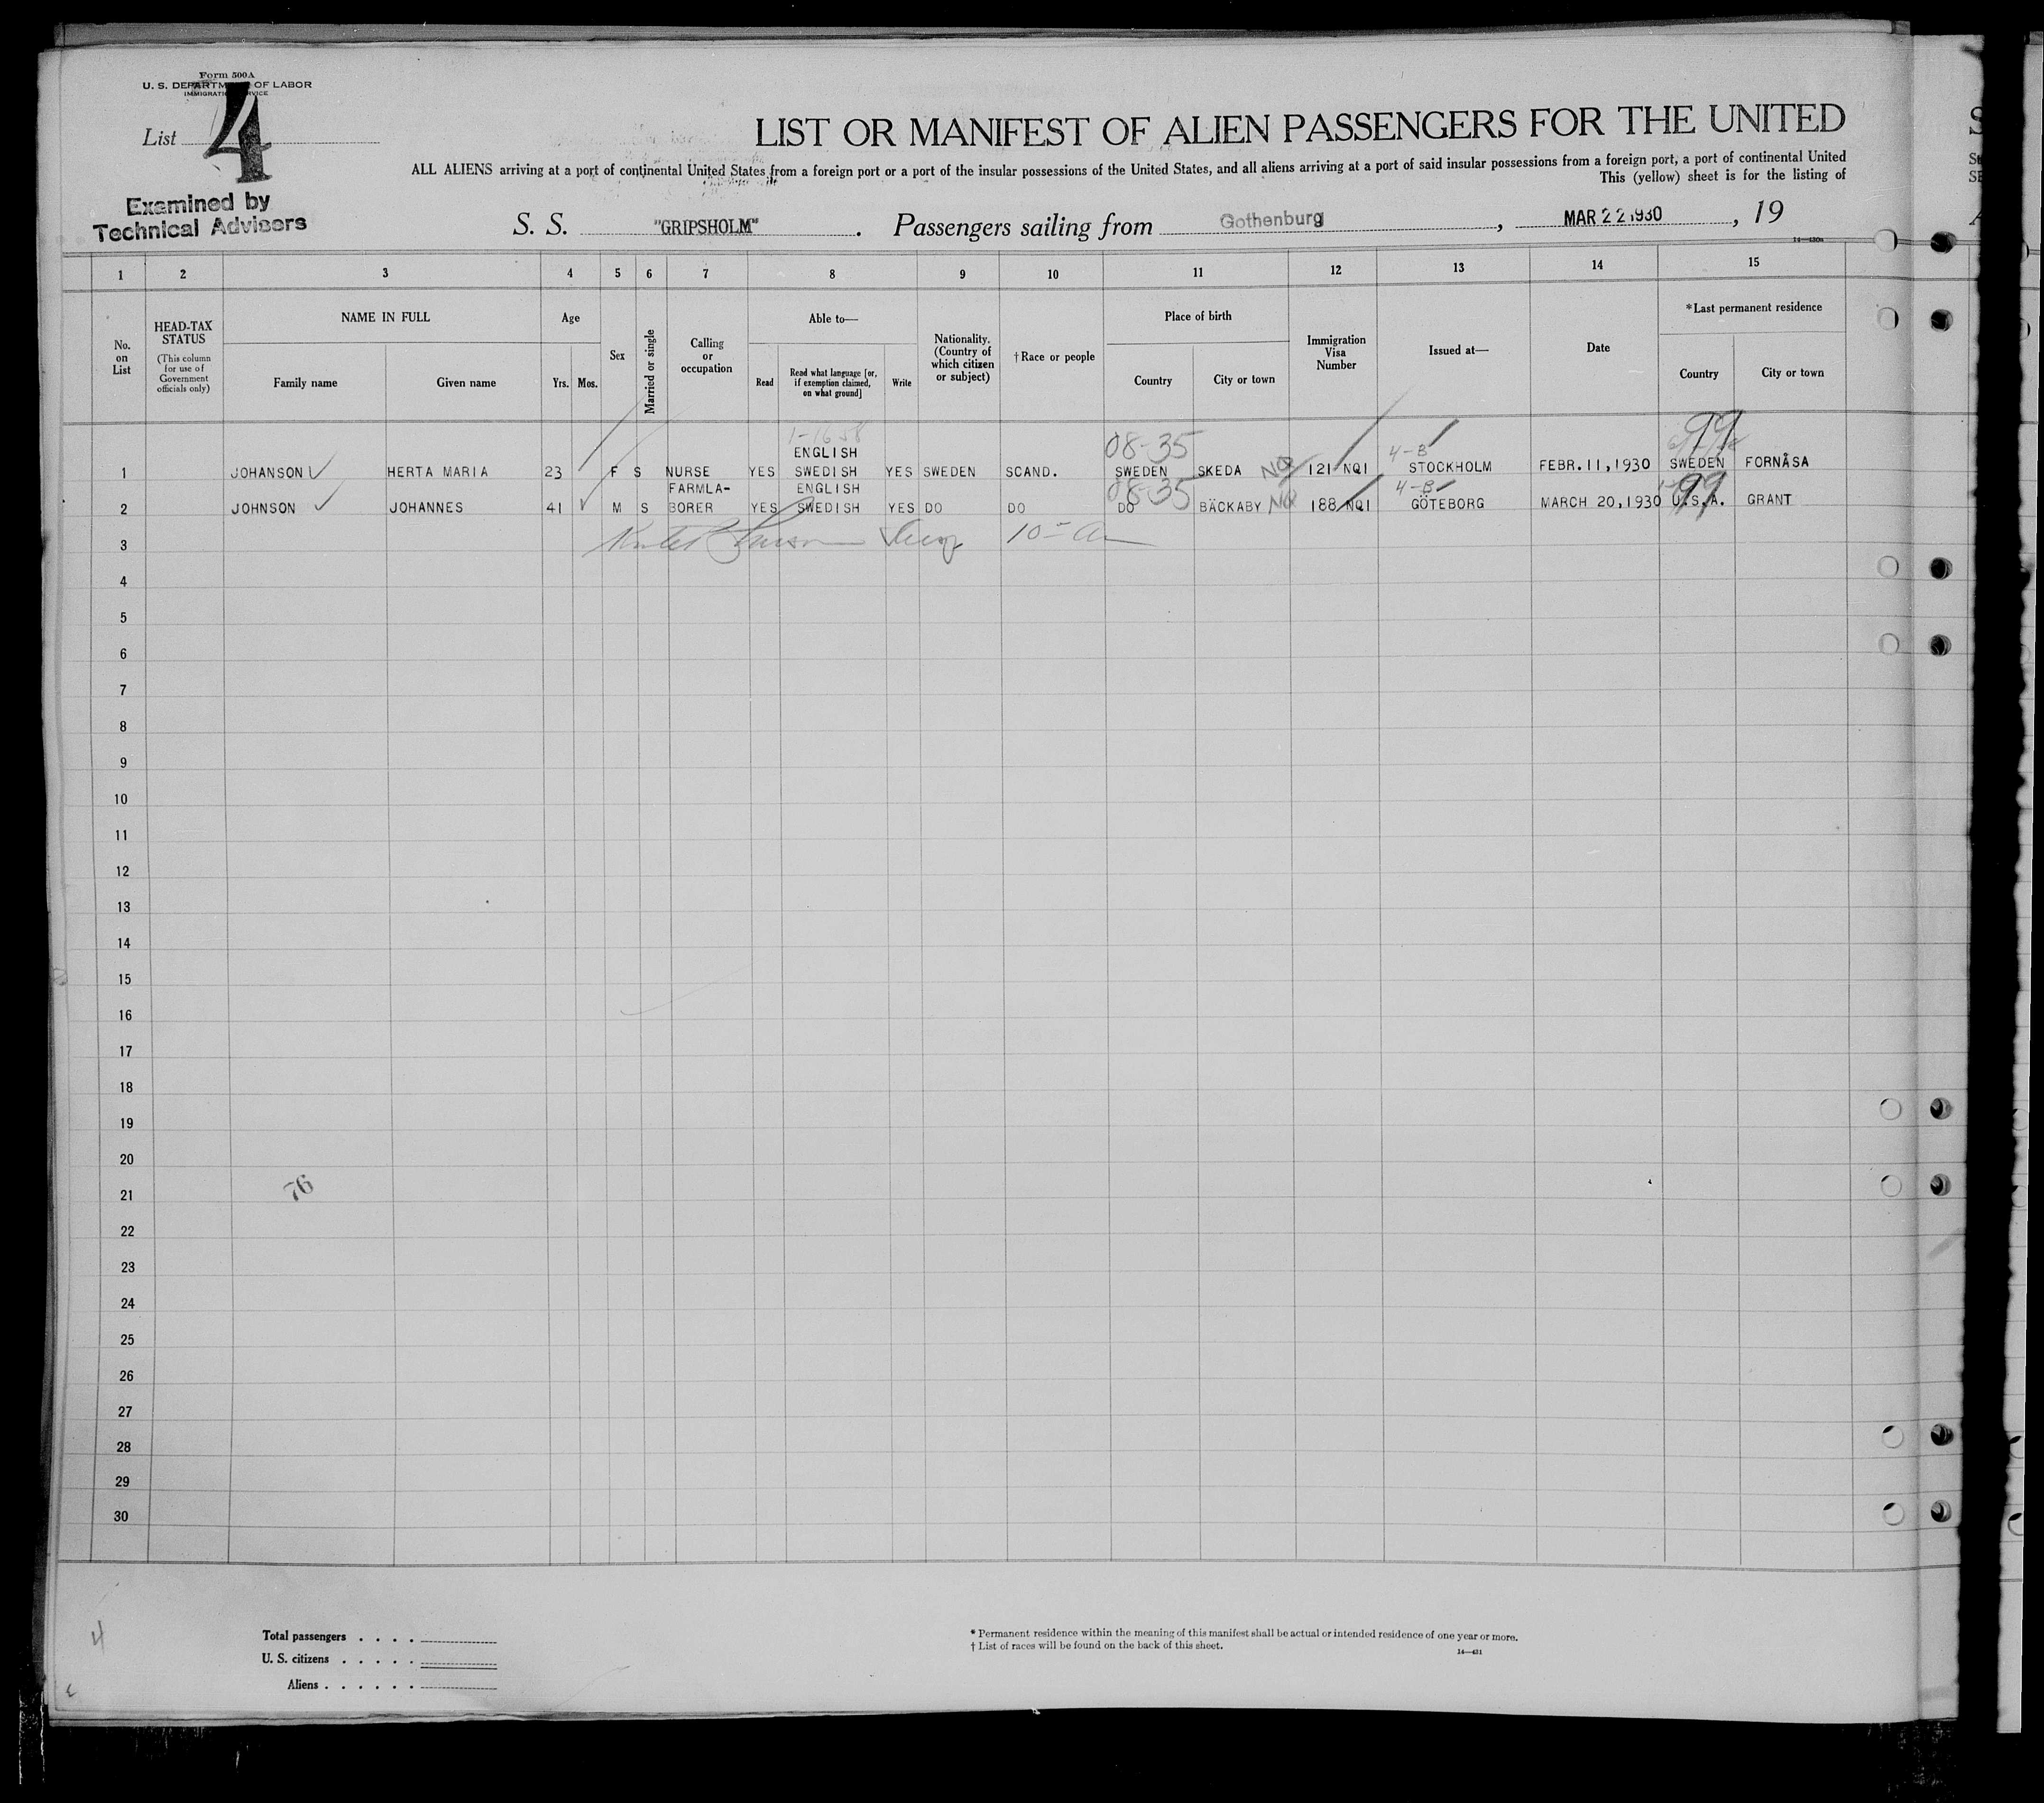 Form 500A
U. S. DEPARTMENT OF LABOR
IMMIGRATION SERVICE
List 4
Examined by
Technical Advisers
LIST OR MANIFEST OF ALIEN PASSENGERS FOR THE UNITED
ALL ALIENS arriving at a port of continental United States from a foreign port or a port of the insular possessions of the United States, and all aliens arriving at a port of said insular possessions from a foreign port, a port of continental United
This (yellow) sheet is for the listing of
S. S. "GRIPSHOLM". Passengers sailing from Gothenburg, MAR 22 1930, 19
1 2 3 4 5 6 7 8 9 10 11 12 13 14 15
No. on List
HEAD-TAX STATUS
(This column for use of Government officials only)
NAME IN FULL
Family name Given name
Age
Yrs. Mos.
Sex
Married or single
Calling or occupation
Able to—
Read
Read what language [or, if exemption claimed, on what ground]
Write
Nationality. (Country of which citizen or subject)
†Race or people
Place of birth
Country City or town
Immigration Visa Number
Issued at—
Date
*Last permanent residence
Country City or town
08-35 4-B 99
ENGLISH
1 JOHANSON HERTA MARIA 23 F S NURSE YES SWEDISH YES SWEDEN SCAND. SWEDEN SKEDA NQ 121 NQI STOCKHOLM FEBR.11,1930 SWEDEN FORNÅSA
FARMLA- ENGLISH 08-35 4-B 99
2 JOHNSON JOHANNES 41 M S BORER YES SWEDISH YES DO DO DO BÄCKABY NQ 188 NQI GÖTEBORG MARCH 20,1930 U.S.A. GRANT
3
4
5
6
7
8
9
10
11
12
13
14
15
16
17
18
19
20
76
21
22
23
24
25
26
27
28
29
30
4
Total passengers . . . .
U. S. citizens . . . . .
Aliens . . . . . .
* Permanent residence within the meaning of this manifest shall be actual or intended residence of one year or more.
† List of races will be found on the back of this sheet.
14—431